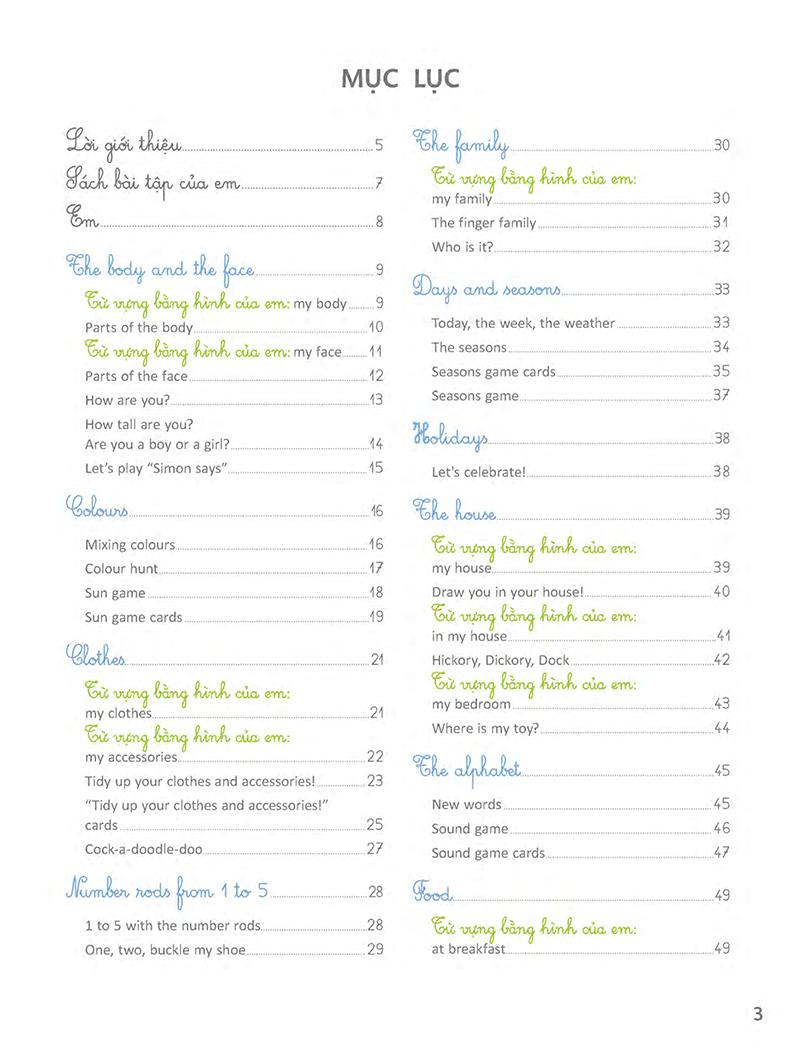 MỤC LỤC
Lời giới thiệu 5
Sách bài tập của em 7
Em 8
The body and the face 9
Từ vựng bằng hình của em: my body 9
Parts of the body 10
Từ vựng bằng hình của em: my face 11
Parts of the face 12
How are you? 13
How tall are you?
Are you a boy or a girl? 14
Let's play “Simon says” 15
Colours 16
Mixing colours 16
Colour hunt 17
Sun game 18
Sun game cards 19
Clothes 21
Từ vựng bằng hình của em:
my clothes 21
Từ vựng bằng hình của em:
my accessories 22
Tidy up your clothes and accessories! 23
“Tidy up your clothes and accessories!”
cards 25
Cock-a-doodle-doo 27
Number rods from 1 to 5 28
1 to 5 with the number rods 28
One, two, buckle my shoe 29
The family 30
Từ vựng bằng hình của em:
my family 30
The finger family 31
Who is it? 32
Days and seasons 33
Today, the week, the weather 33
The seasons 34
Seasons game cards 35
Seasons game 37
Holidays 38
Let's celebrate! 38
The house 39
Từ vựng bằng hình của em:
my house 39
Draw you in your house! 40
Từ vựng bằng hình của em:
in my house 41
Hickory, Dickory, Dock 42
Từ vựng bằng hình của em:
my bedroom 43
Where is my toy? 44
The alphabet 45
New words 45
Sound game 46
Sound game cards 47
Food 49
Từ vựng bằng hình của em:
at breakfast 49
3